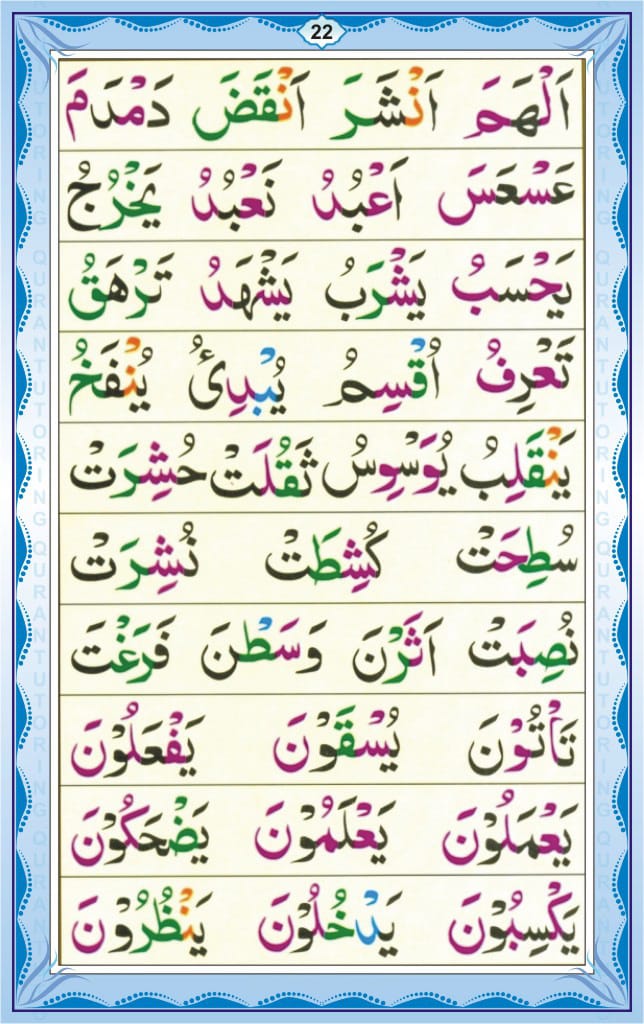 22
اَلْهَمَ اَنْشَرَ اَنْقَضَ دَمْدَمَ
عَسْعَسَ اَعْبُدُ نَعْبُدُ يَخْرُجُ
يَحْسَبُ يَشْرَبُ يَشْهَدُ تَرْهَقُ
تَعْرِفُ اُقْسِمُ يُبْدِئُ يُنْفَخُ
يَنْقَلِبُ يُوَسْوِسُ ثَقُلَتْ حُشِرَتْ
سُطِحَتْ كُشِطَتْ نُشِرَتْ
نُصِبَتْ اَثَرْنَ وَسَطْنَ فَرَغْتَ
تَأْتُوْنَ يُسْقَوْنَ يَفْعَلُوْنَ
يَعْمَلُوْنَ يَعْلَمُوْنَ يَضْحَكُوْنَ
يَكْسِبُوْنَ يَدْخُلُوْنَ يَنْظُرُوْنَ
QURAN TUTORING QURAN TUTORING
QURAN TUTORING QURAN TUTORING